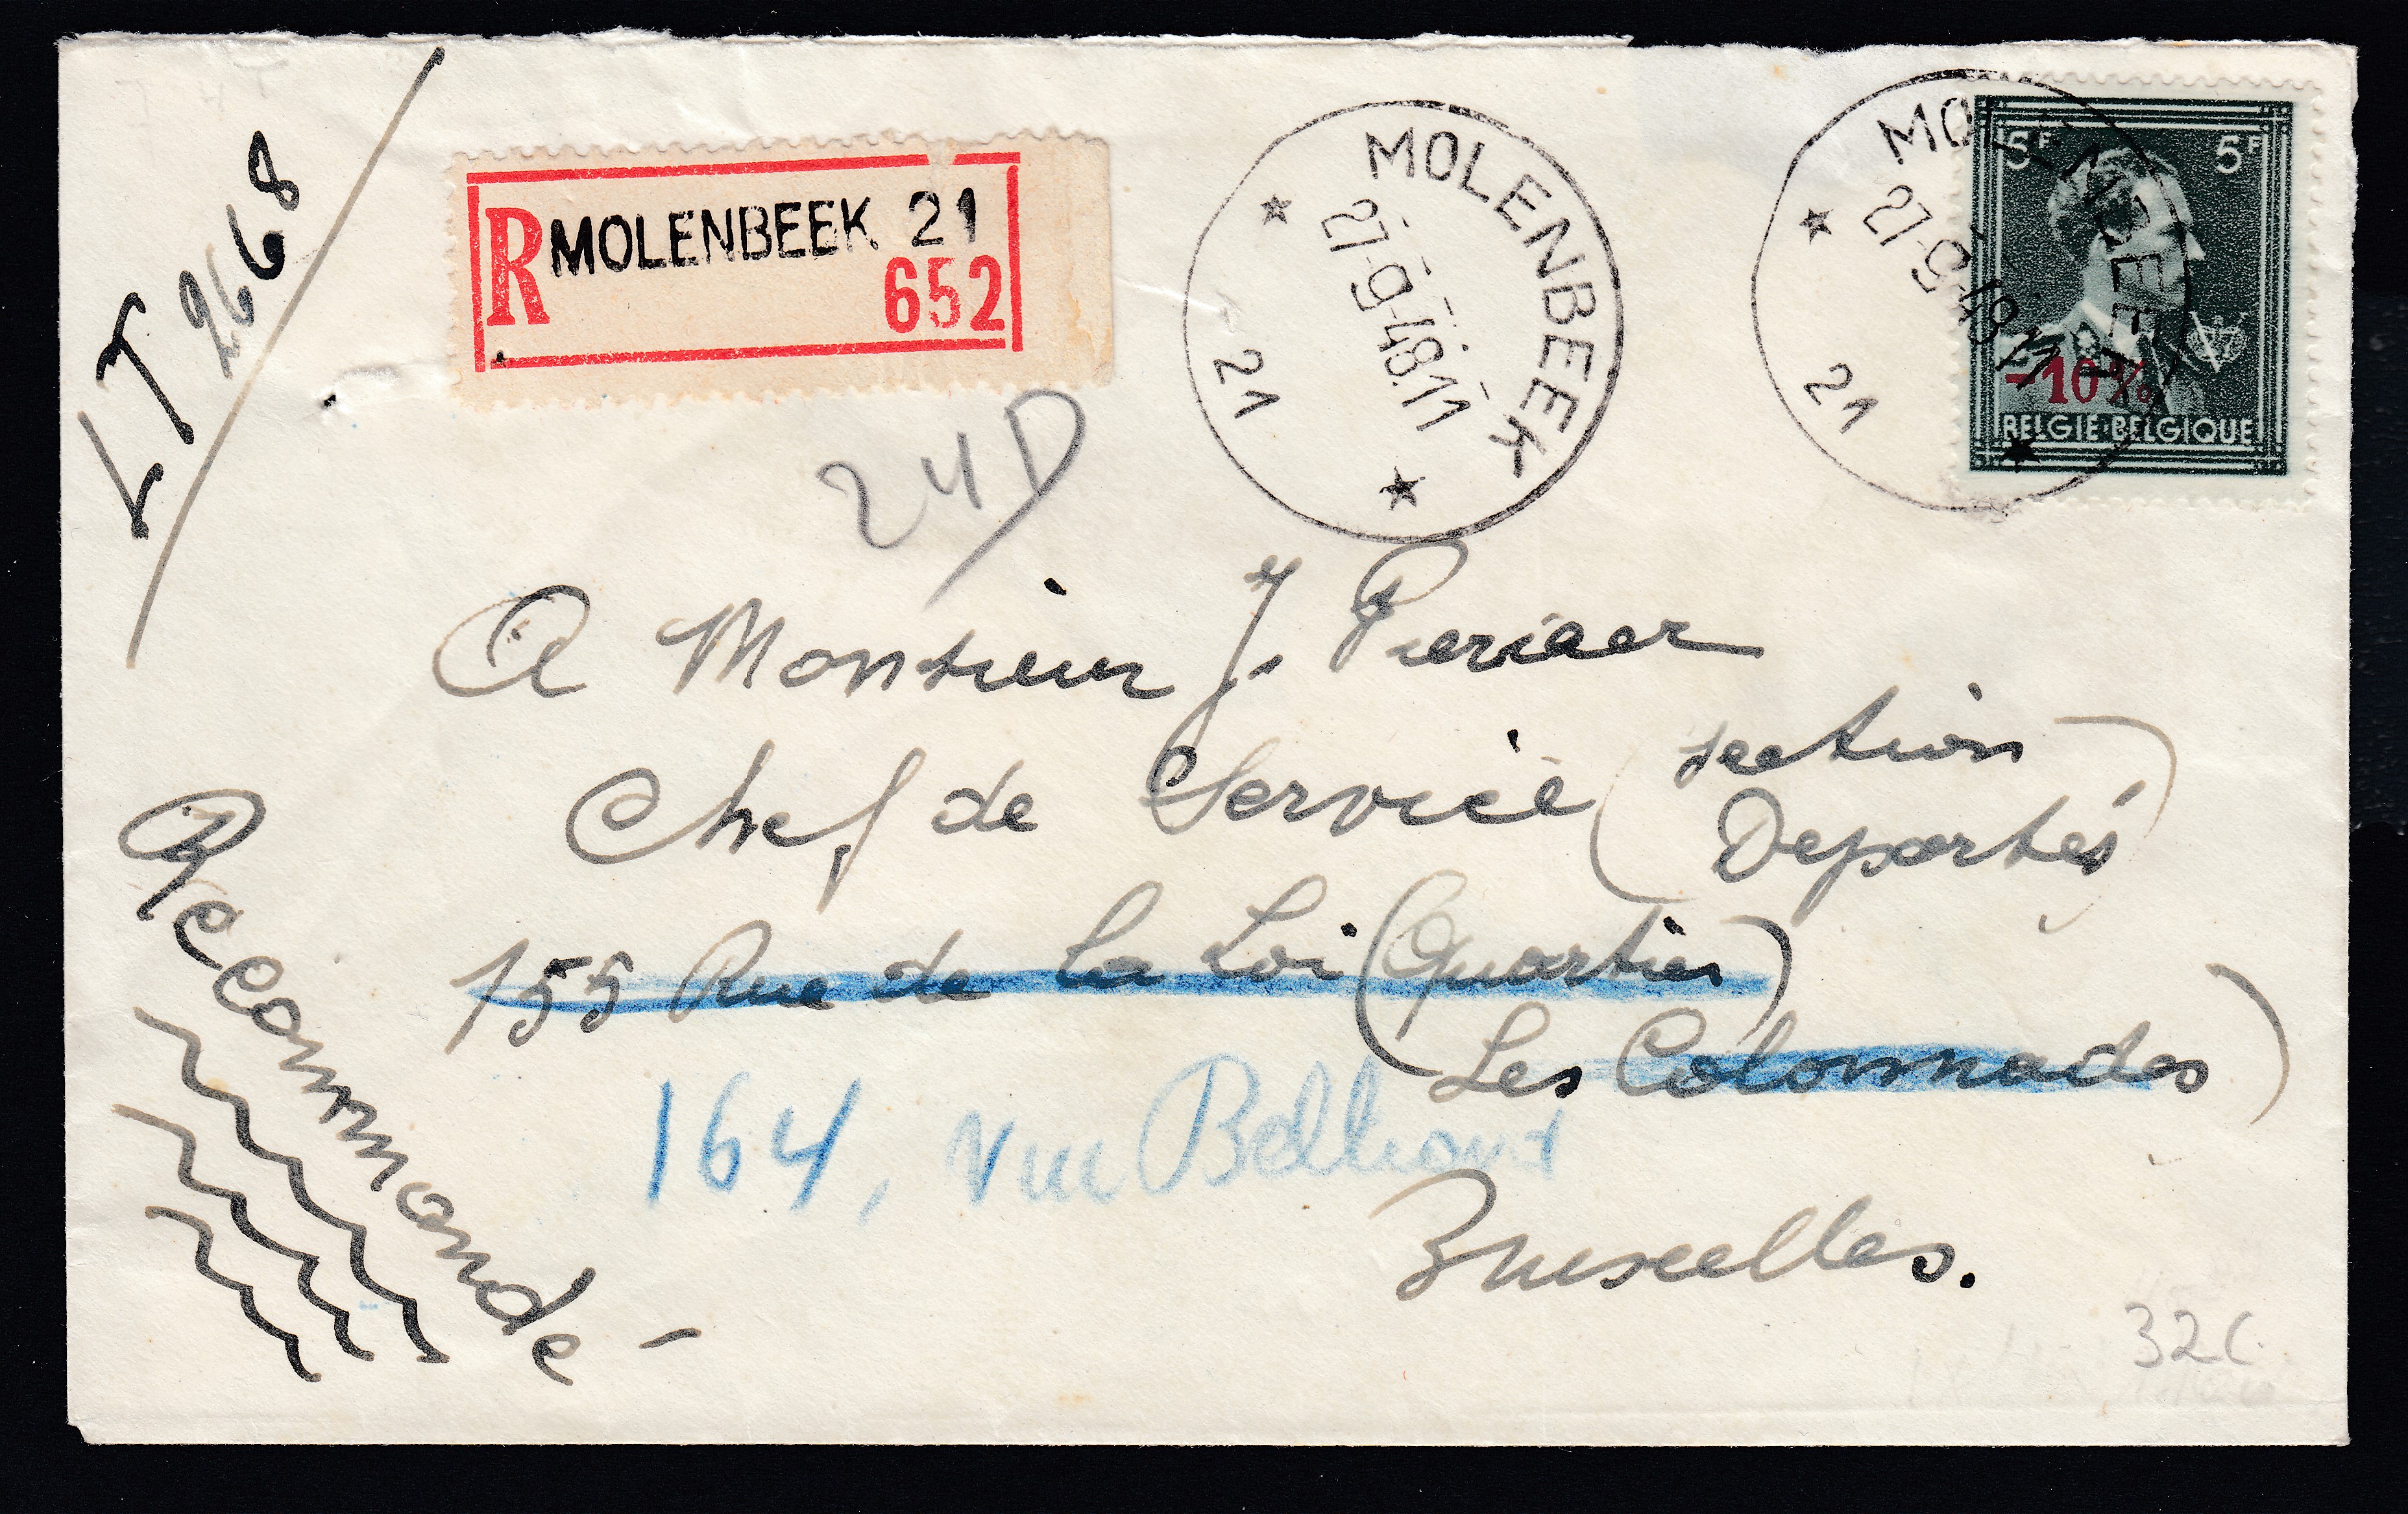 LT 2668
R MOLENBEEK 21
652
MOLENBEEK
27-9-48.11
21
MOLENBEEK
27-9-48.11
21
5F 5F
-10%
BELGIE·BELGIQUE
24D
A Monsieur J.
Chef de Service (section
Deportés)
155 Rue de la Loi (Quartier)
Les Colonnades)
164, rue Belliard
Bruxelles.
Recommandé
32C